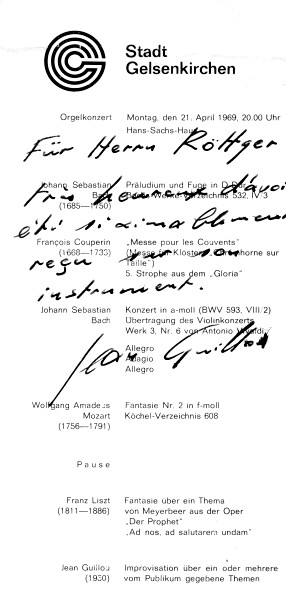 Stadt
Gelsenkirchen
Orgelkonzert Montag, den 21. April 1969, 20.00 Uhr
Hans-Sachs-Haus
Für Herrn Röttger
Johann Sebastian Bach Präludium und Fuge in D-Dur
(1685—1750) Bach-Werke-Verzeichnis 532, IV/3
Très heureux d'avoir
été si aimablement
François Couperin „Messe pour les Couvents"
(1668—1733) (Messe für Klöster)
Taille")
5. Strophe aus dem „Gloria"
reçu sur son
instrument.
Johann Sebastian Konzert in a-moll (BWV 593, VIII/2)
Bach Übertragung des Violinkonzerts
Werk 3, Nr. 6 von Antonio Vivaldi
Allegro
Adagio
Allegro
Jean Guillou
Wolfgang Amadeus Fantasie Nr. 2 in f-moll
Mozart Köchel-Verzeichnis 608
(1756—1791)
Pause
Franz Liszt Fantasie über ein Thema
(1811—1886) von Meyerbeer aus der Oper
„Der Prophet"
„Ad nos, ad salutarem undam"
Jean Guillou Improvisation über ein oder mehrere
(1930) vom Publikum gegebene Themen